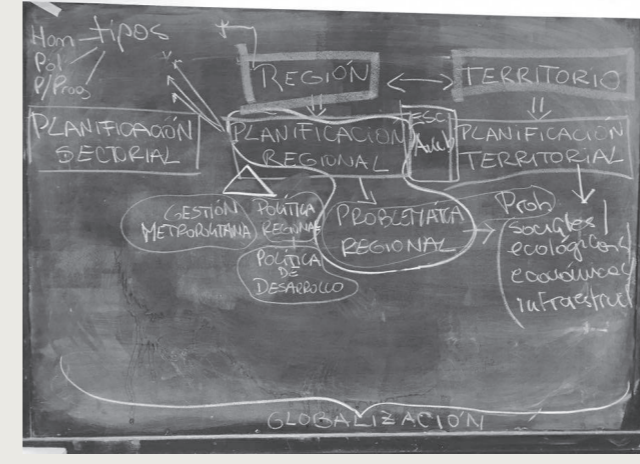 Hom
tipos
Pol
P/Prog
REGIÓN
TERRITORIO
PLANIFICACIÓN
SECTORIAL
PLANIFICACIÓN
REGIONAL
ESC
PLANIFICACIÓN
TERRITORIAL
GESTIÓN
METROPOLITANA
POLÍTICA
REGIONAL
POLÍTICA
DE
DESARROLLO
PROBLEMÁTICA
REGIONAL
Prob
sociales
ecológicos
económicas
infraestruc
GLOBALIZACIÓN